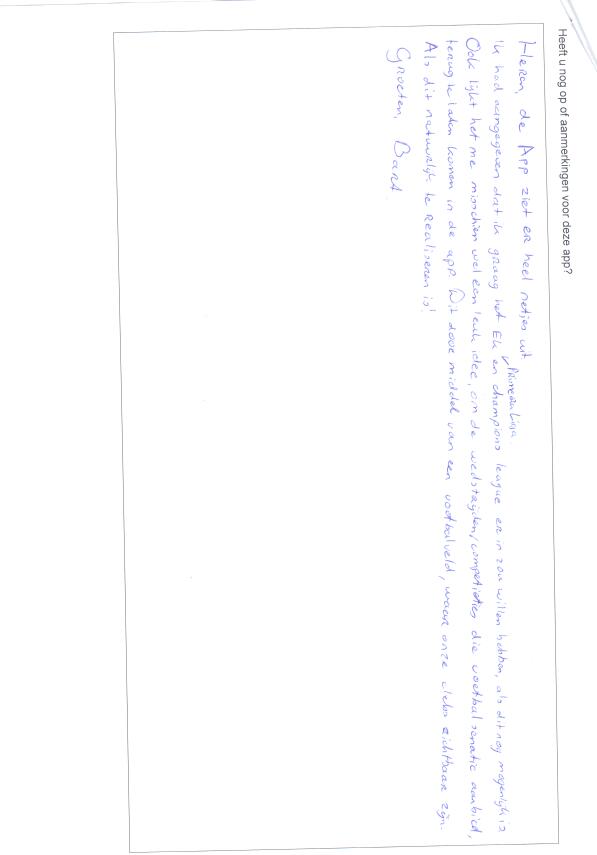 Heeft u nog op of aanmerkingen voor deze app?
Heren, de App ziet er heel netjes uit.
Primera Liga
Ik had aangegeven dat ik graag het EK en champions league er in zou willen hebben, als dit nog mogelijk is
Ook lijkt het me misschien wel een leuk idee, om de wedstrijden/competities die voetbalfanatic aanbied,
terug te laten komen in de app. Dit door middel van een voetbalveld, waar onze clubs zichtbaar zijn.
Als dit natuurlijk te realiseren is!
Groeten, Bart